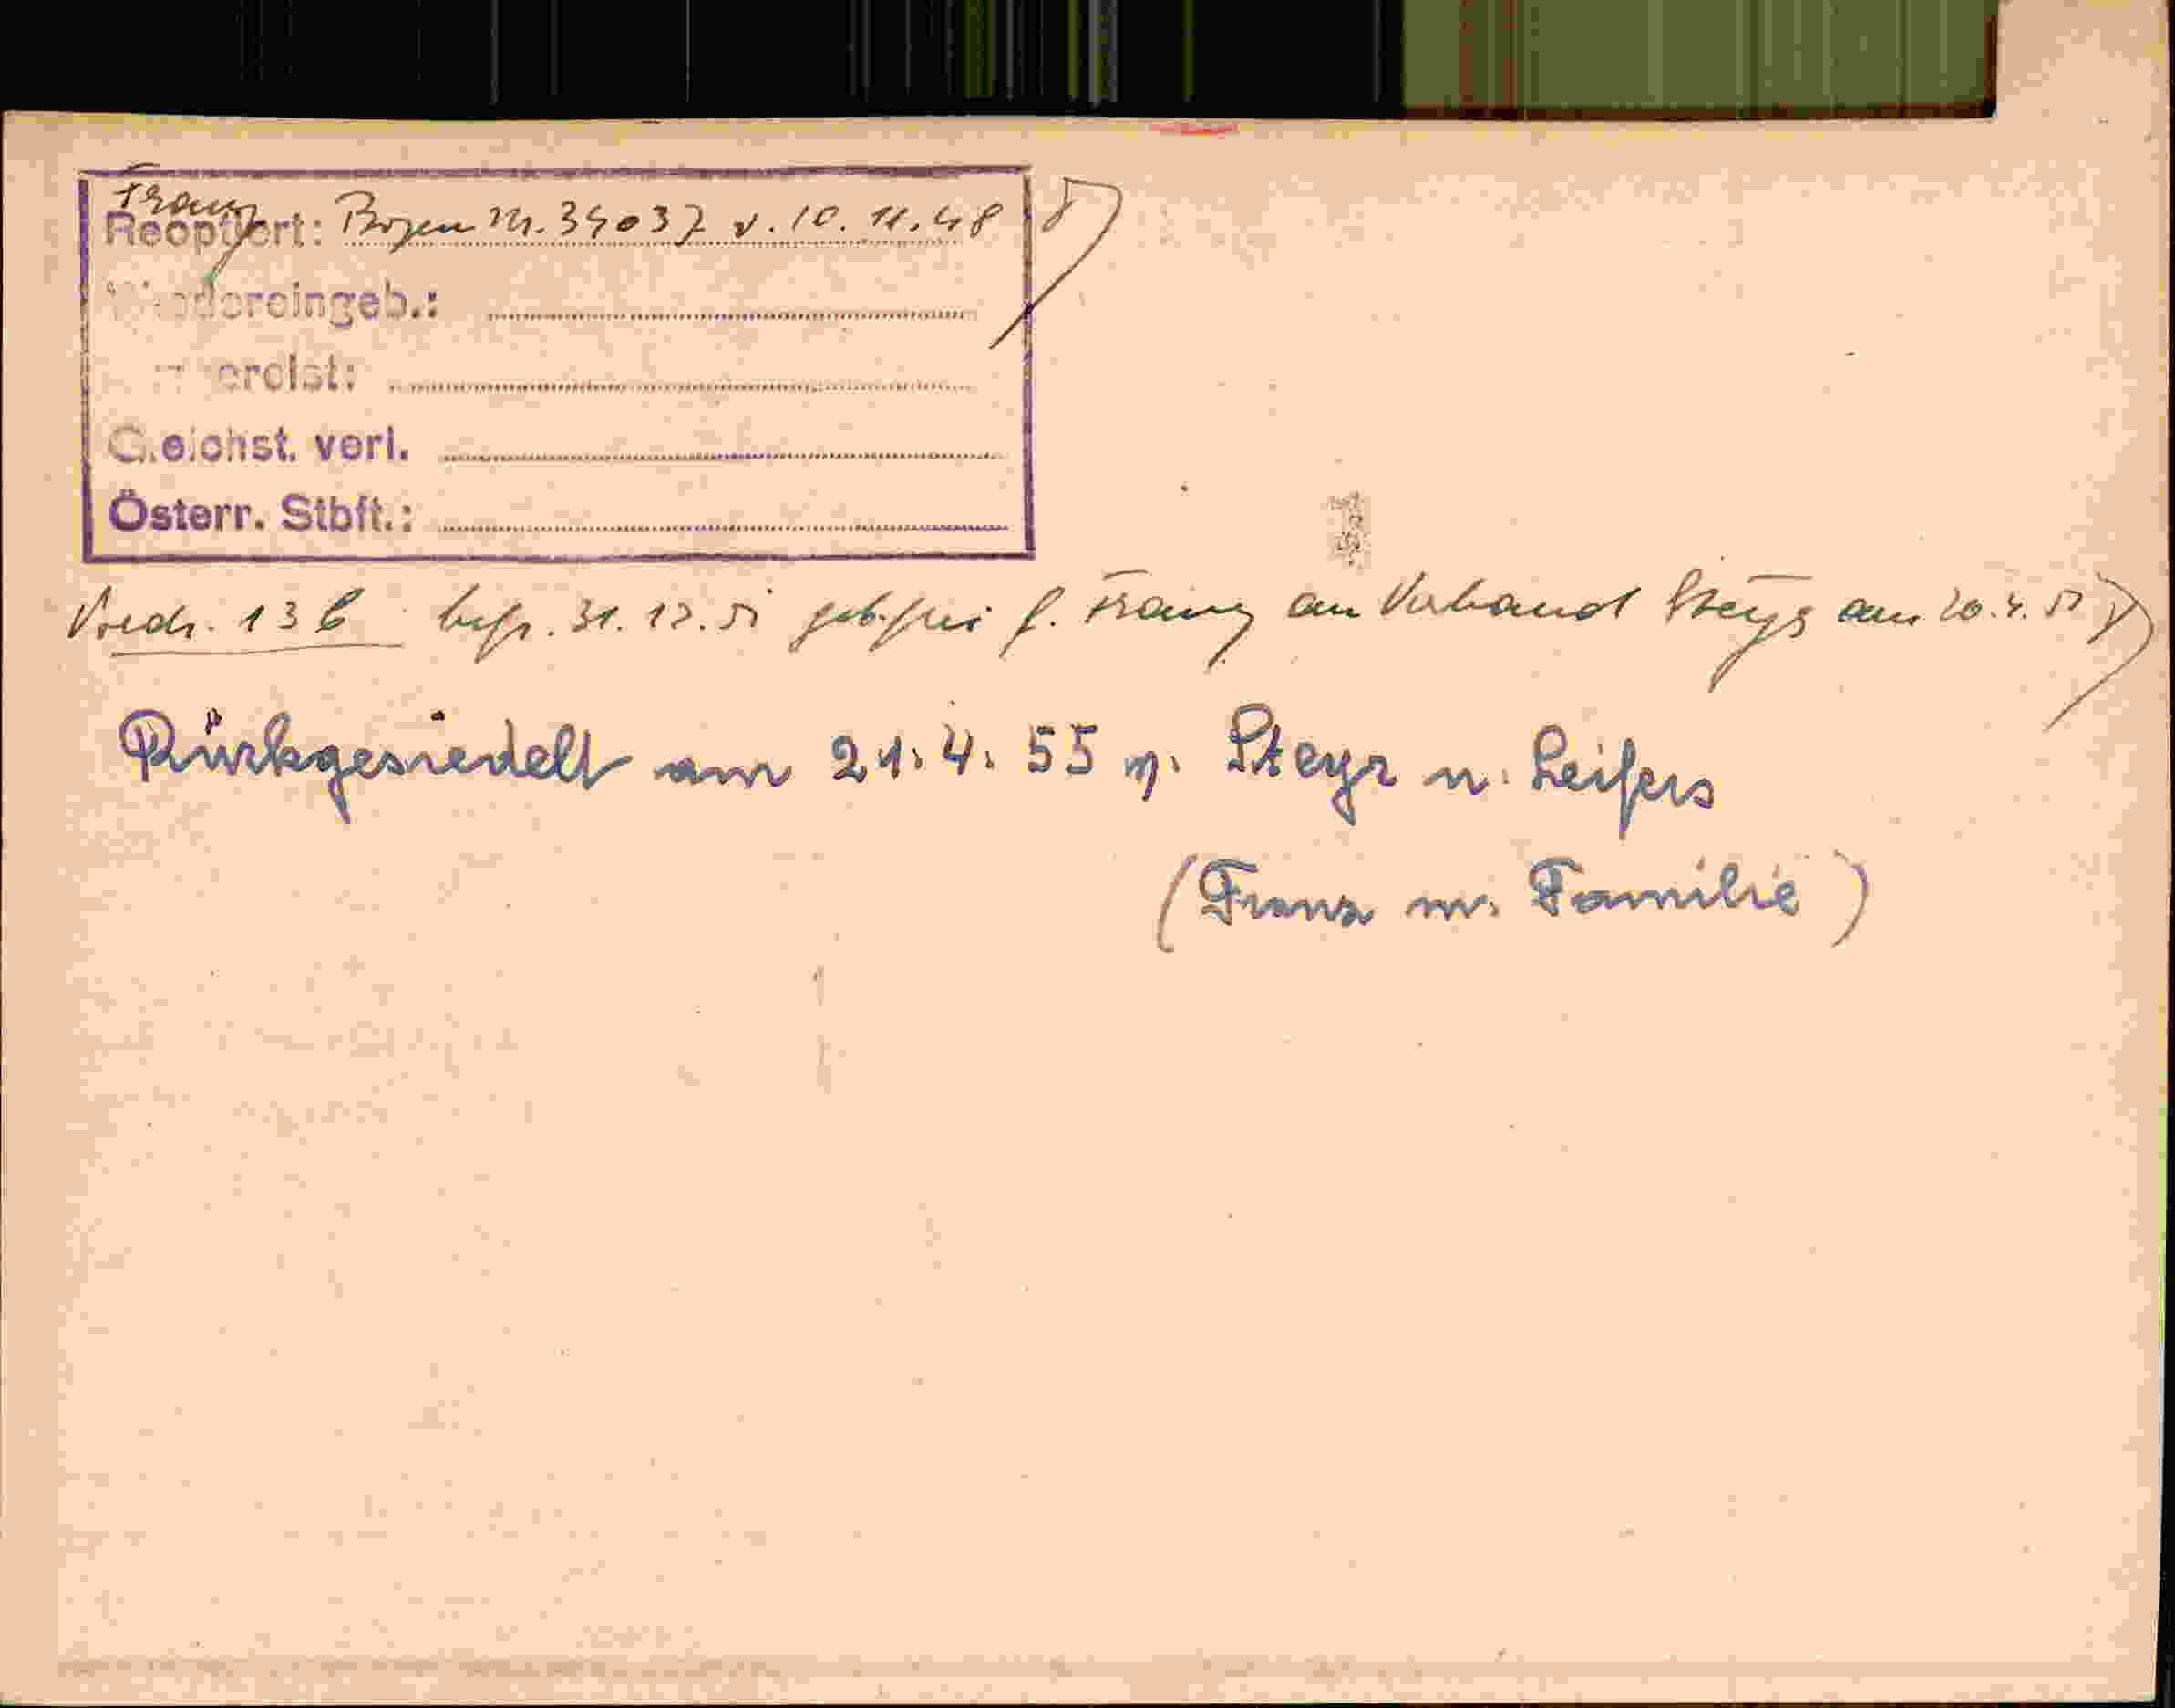 Franz
Reoptiert: Bozen Nr. 34037 v. 10. 11. 48
Wiedereingeb.:
ereist:
Gleichst. verl.
Österr. Stbft.:
Vordr. 13 b befr. 31. 12. 51 geb.frei f. Franz an Verband Steyr am 20. 4. 51
Rückgesiedelt am 21. 4. 55 v. Steyr n. Leifers
(Franz m. Familie)